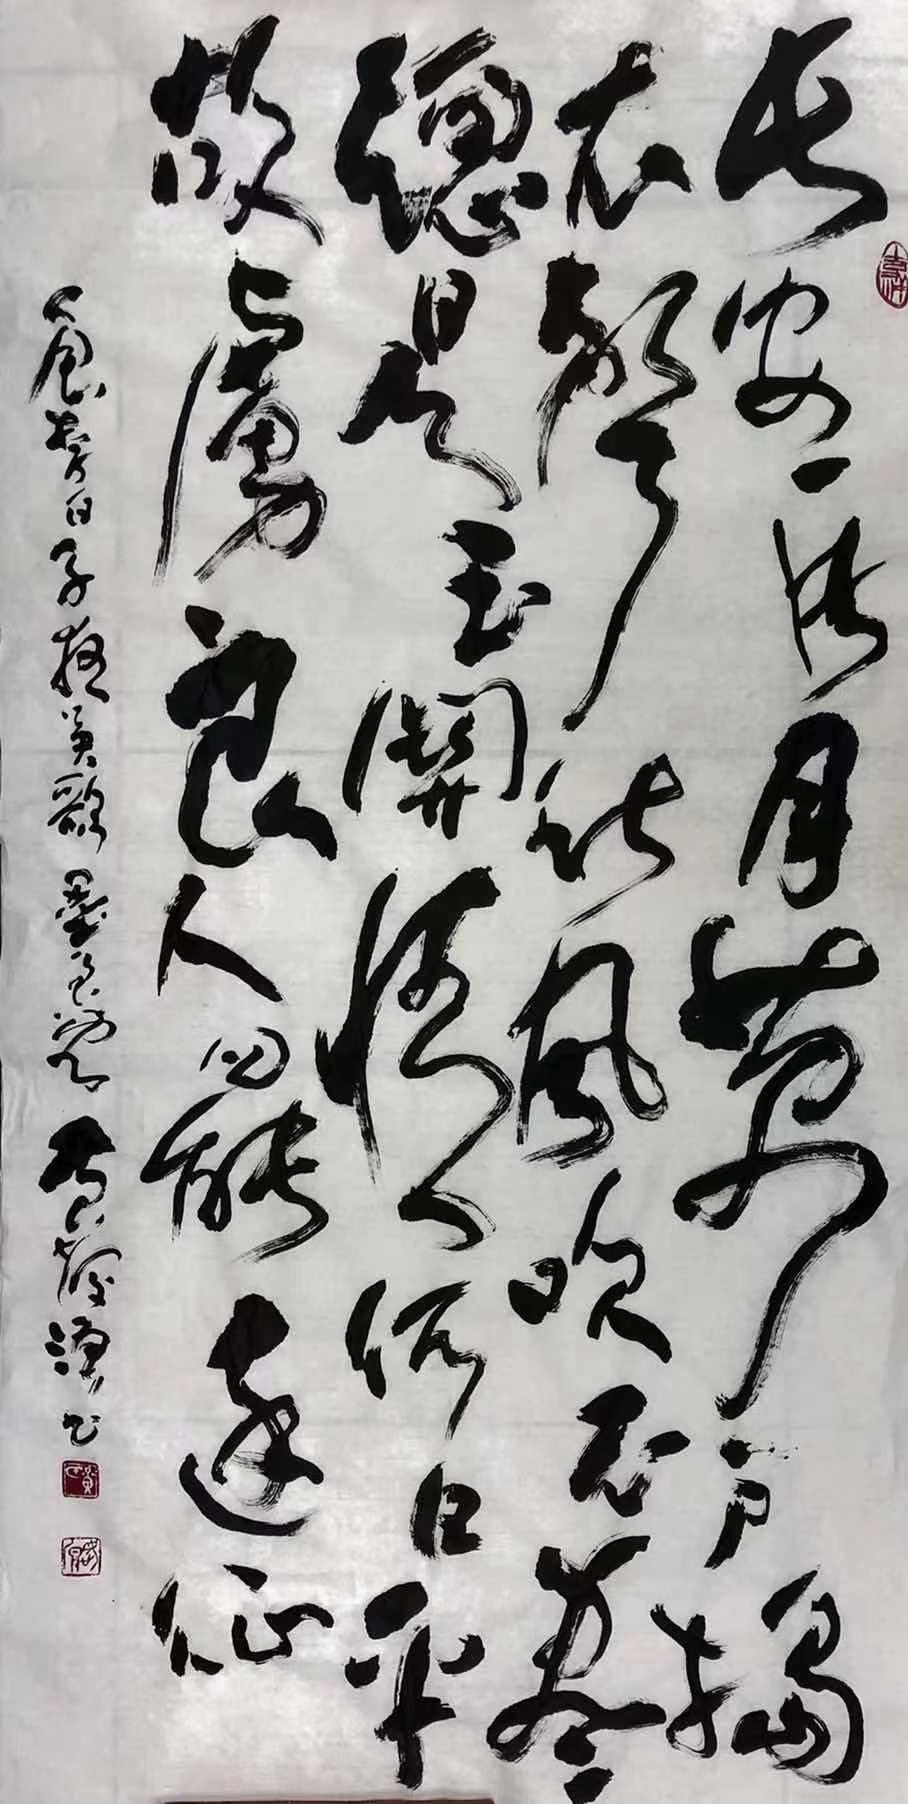 長安一片月萬戶擣
衣聲秋風吹不盡
總是玉關情何日平
胡虜良人罷遠征
錄李白子夜吳歌
書